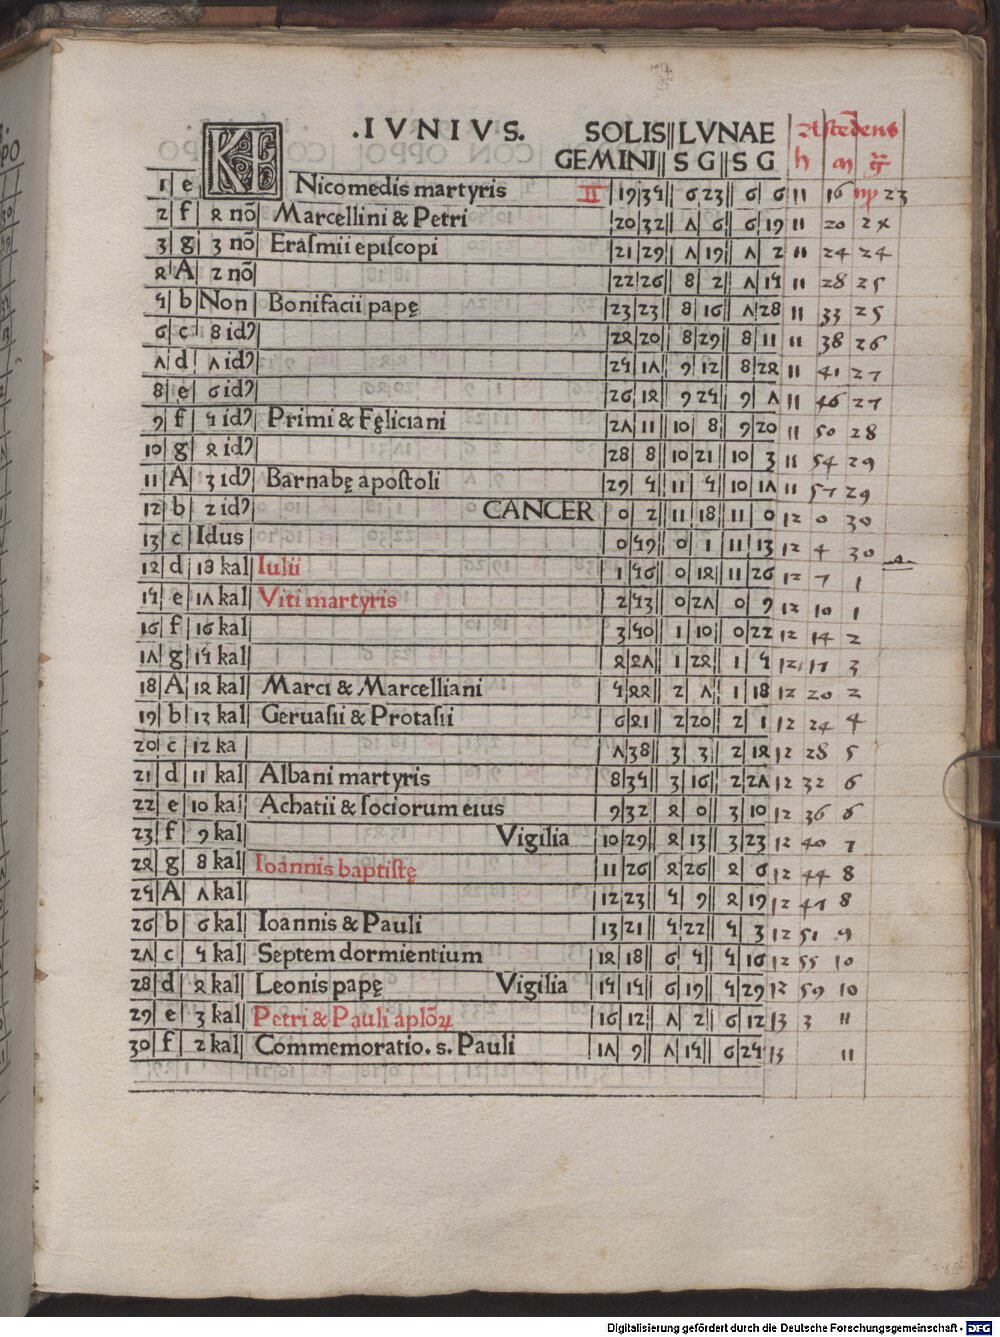 .IVNIVS. SOLIS LVNAE Ascēdens
GEMINI S G S G h m g̃
1 e KL Nicomedis martyris II 19 35 6 23 6 6 11 16 ♍ 23
2 f 4 nō Marcellini & Petri 20 32 7 6 6 19 11 20 24
3 g 3 nō Eraſmii epiſcopi 21 29 7 19 7 2 11 24 24
4 A 2 nō 22 26 8 2 7 15 11 28 25
5 b Non Bonifacii papę 23 23 8 16 7 28 11 33 25
6 c 8 idꝰ 24 20 8 29 8 11 11 38 26
7 d 7 idꝰ 25 17 9 12 8 24 11 41 27
8 e 6 idꝰ 26 14 9 25 9 7 11 46 27
9 f 5 idꝰ Primi & Fęliciani 27 11 10 8 9 20 11 50 28
10 g 4 idꝰ 28 8 10 21 10 3 11 54 29
11 A 3 idꝰ Barnabę apoſtoli 29 5 11 5 10 17 11 57 29
12 b 2 idꝰ CANCER 0 2 11 18 11 0 12 0 30
13 c Idus 0 59 0 1 11 13 12 4 30
14 d 18 kal Iulii 1 56 0 14 11 26 12 7 1 ♎
15 e 17 kal Viti martyris 2 53 0 27 0 9 12 10 1
16 f 16 kal 3 50 1 10 0 22 12 14 2
17 g 15 kal 4 47 1 24 1 5 12 17 3
18 A 14 kal Marci & Marcelliani 5 44 2 7 1 18 12 20 2
19 b 13 kal Geruaſii & Protaſii 6 41 2 20 2 1 12 24 4
20 c 12 ka 7 38 3 3 2 14 12 28 5
21 d 11 kal Albani martyris 8 35 3 16 2 27 12 32 6
22 e 10 kal Achatii & ſociorum eius 9 32 4 0 3 10 12 36 6
23 f 9 kal Vigilia 10 29 4 13 3 23 12 40 7
24 g 8 kal Ioannis baptiſtę 11 26 4 26 4 6 12 44 8
25 A 7 kal 12 23 5 9 4 19 12 47 8
26 b 6 kal Ioannis & Pauli 13 21 5 22 5 3 12 51 9
27 c 5 kal Septem dormientium 14 18 6 5 5 16 12 55 10
28 d 4 kal Leonis papę Vigilia 15 15 6 19 5 29 12 59 10
29 e 3 kal Petri & Pauli aplōꝝ 16 12 7 2 6 12 13 3 11
30 f 2 kal Commemoratio. s. Pauli 17 9 7 15 6 25 13 11
Digitalisierung gefördert durch die Deutsche Forschungsgemeinschaft - DFG